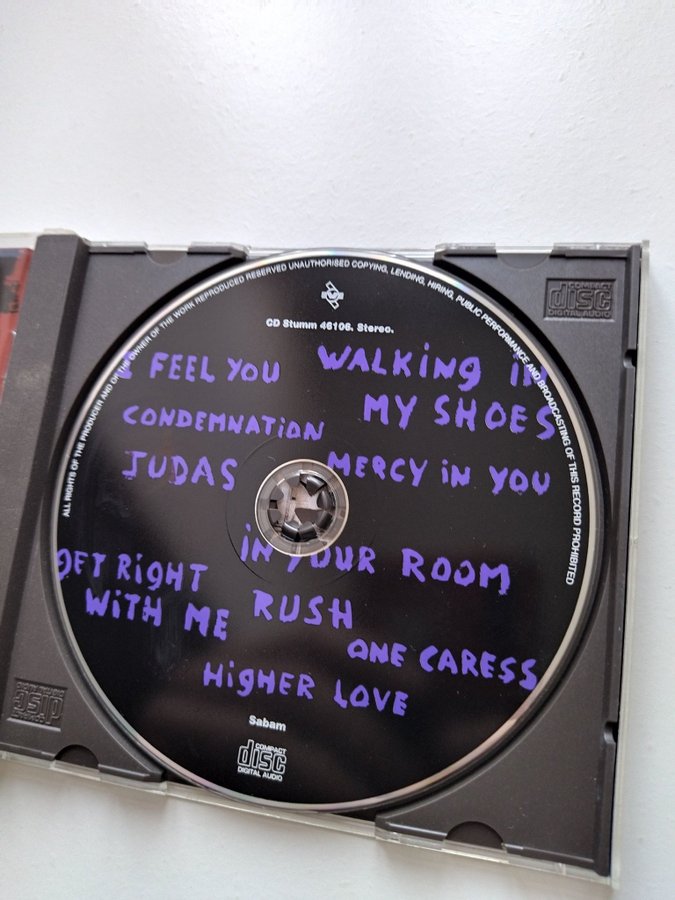 ALL RIGHTS OF THE PRODUCER AND OF THE OWNER OF THE WORK REPRODUCED RESERVED UNAUTHORISED COPYING, LENDING, HIRING, PUBLIC PERFORMANCE AND BROADCASTING OF THIS RECORD PROHIBITED
CD Stumm 46106. Stereo.
COMPACT
disc
DIGITAL AUDIO
I FEEL YOU
WALKING IN
MY SHOES
CONDEMNATION
JUDAS
MERCY IN YOU
IN YOUR ROOM
GET RIGHT
WITH ME
RUSH
ONE CARESS
HIGHER LOVE
Sabam
COMPACT
disc
DIGITAL AUDIO